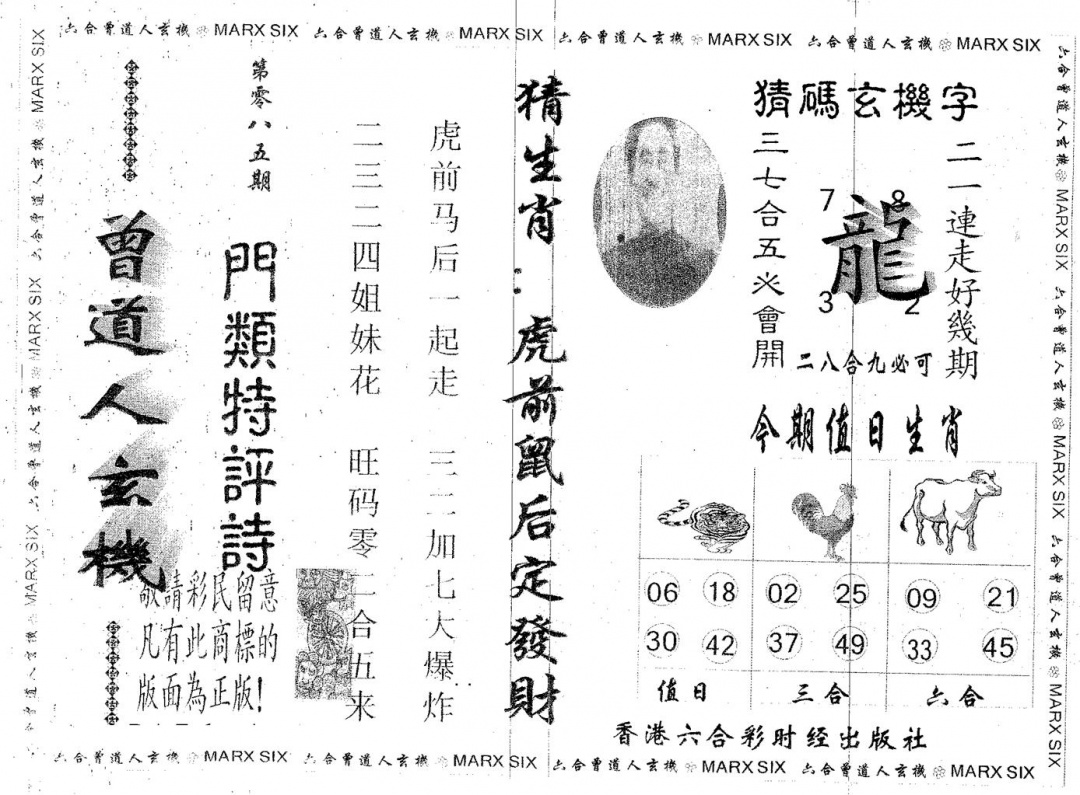 六合曾道人玄機 MARX SIX 六合曾道人玄機 MARX SIX 六合曾道人玄機 MARX SIX 六合曾道人玄機 MARX SIX
猜碼玄機字
二一連走好幾期
龍
7
8
3
2
三七合五必會開
二八合九必可
今期值日生肖
06 18 02 25 09 21
30 42 37 49 33 45
值日 三合 六合
香港六合彩时经出版社
猜生肖：虎前鼠后定發財
虎前马后一起走 三二加七大爆炸
二三二四姐妹花 旺码零二合五来
第零八五期
門類特評詩
曾道人玄機
敬請彩民留意
凡有此商標的
版面為正版!
六合曾道人玄機 MARX SIX 六合曾道人玄機 MARX SIX 六合曾道人玄機 MARX SIX
六合曾道人玄機 MARX SIX 六合曾道人玄機 MARX SIX 六合曾道人玄機 MARX SIX
六合曾道人玄機 MARX SIX 六合曾道人玄機 MARX SIX 六合曾道人玄機 MARX SIX 六合曾道人玄機 MARX SIX